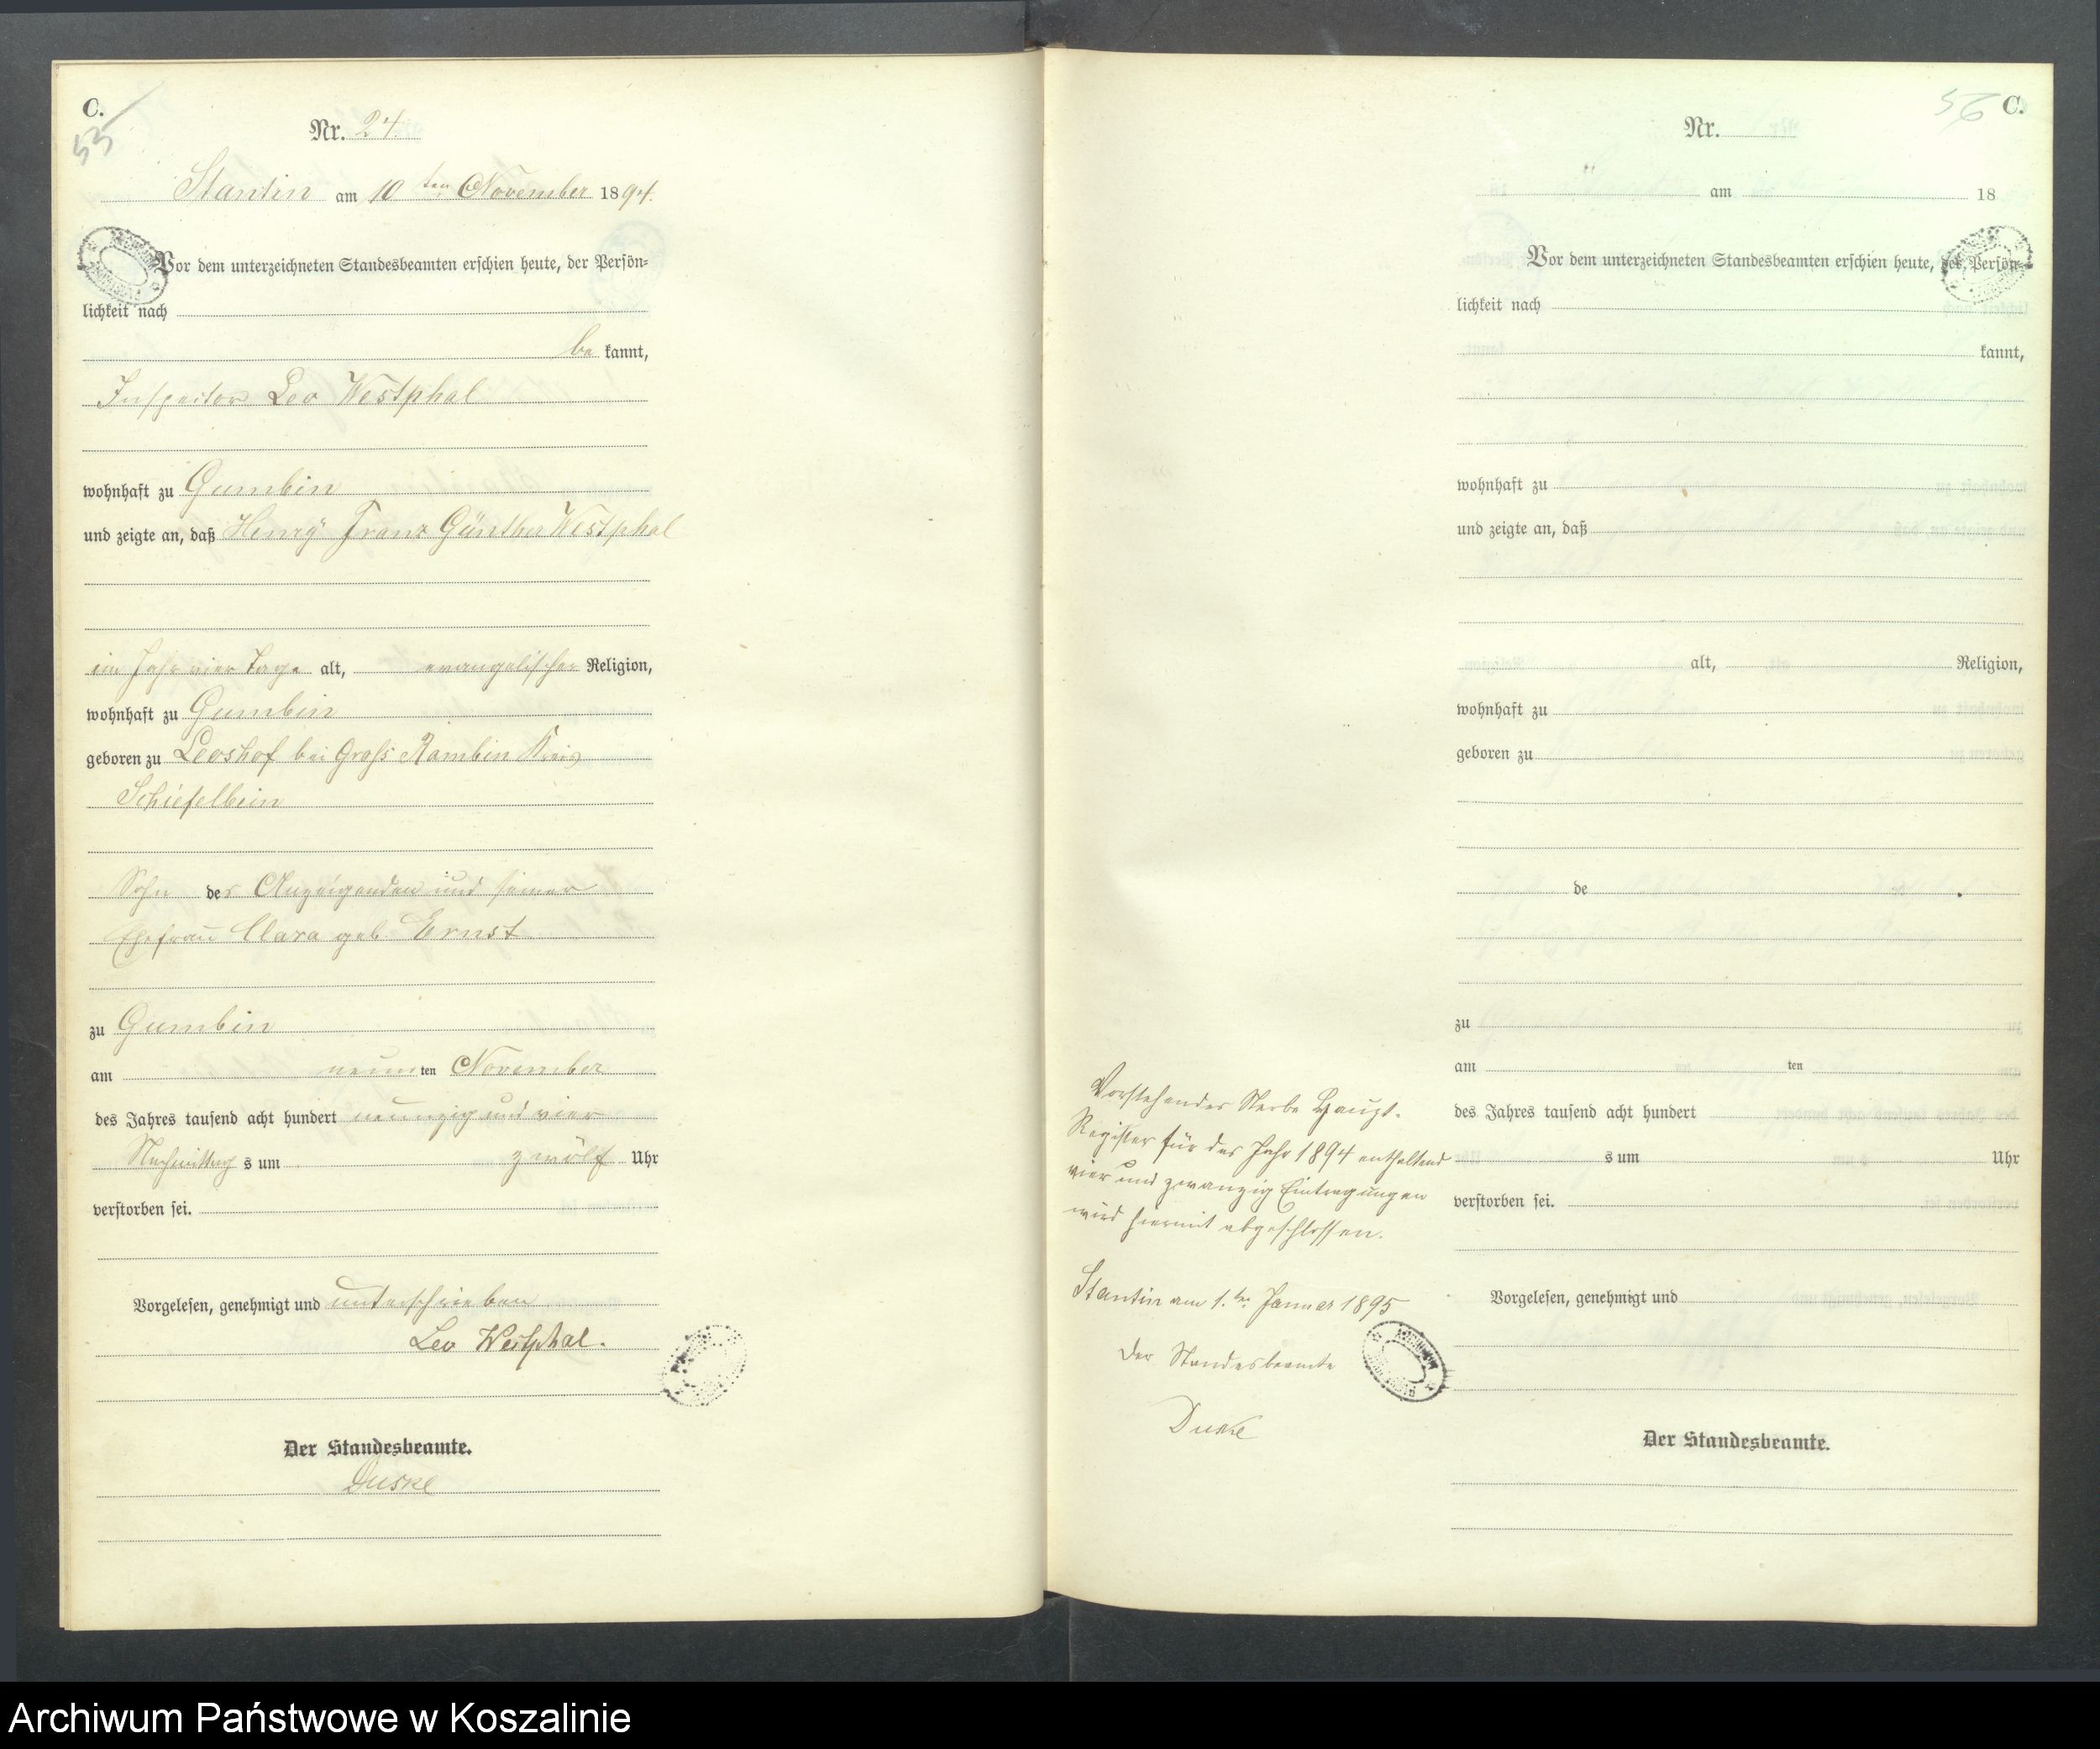 C.
53
Nr. 24.
Stantin am 10ten November 1894.
Vor dem unterzeichneten Standesbeamten erschien heute, der Persön-
lichkeit nach
be kannt,
Inspector Leo Westphal
wohnhaft zu Gumbin
und zeigte an, daß Henry Franz Günther Westphal
ein Jahr vier Tage alt, evangelischer Religion,
wohnhaft zu Gumbin
geboren zu Leoshof bei Groß Rambin Kreis
Schiefelbein
Sohn des Anzeigenden und seiner
Ehefrau Clara geb Ernst
zu Gumbin
am neunten November
des Jahres tausend acht hundert neunzig und vier
Nachmittags um zwölf Uhr
verstorben sei.
Vorgelesen, genehmigt und unterschrieben
Leo Westphal.
Der Standesbeamte.
Duske
56 C.
Nr.
am 18
Vor dem unterzeichneten Standesbeamten erschien heute, der Persön-
lichkeit nach
kannt,
wohnhaft zu
und zeigte an, daß
alt, Religion,
wohnhaft zu
geboren zu
de
zu
am ten
des Jahres tausend acht hundert
s um Uhr
verstorben sei.
Vorgelesen, genehmigt und
Der Standesbeamte.
Vorstehendes Sterbe Haupt-
Register für das Jahr 1894 enthaltend
vier und zwanzig Eintragungen
wird hiermit abgeschlossen.
Stantin am 1.ten Januar 1895
Der Standesbeamte
Duske
Archiwum Państwowe w Koszalinie